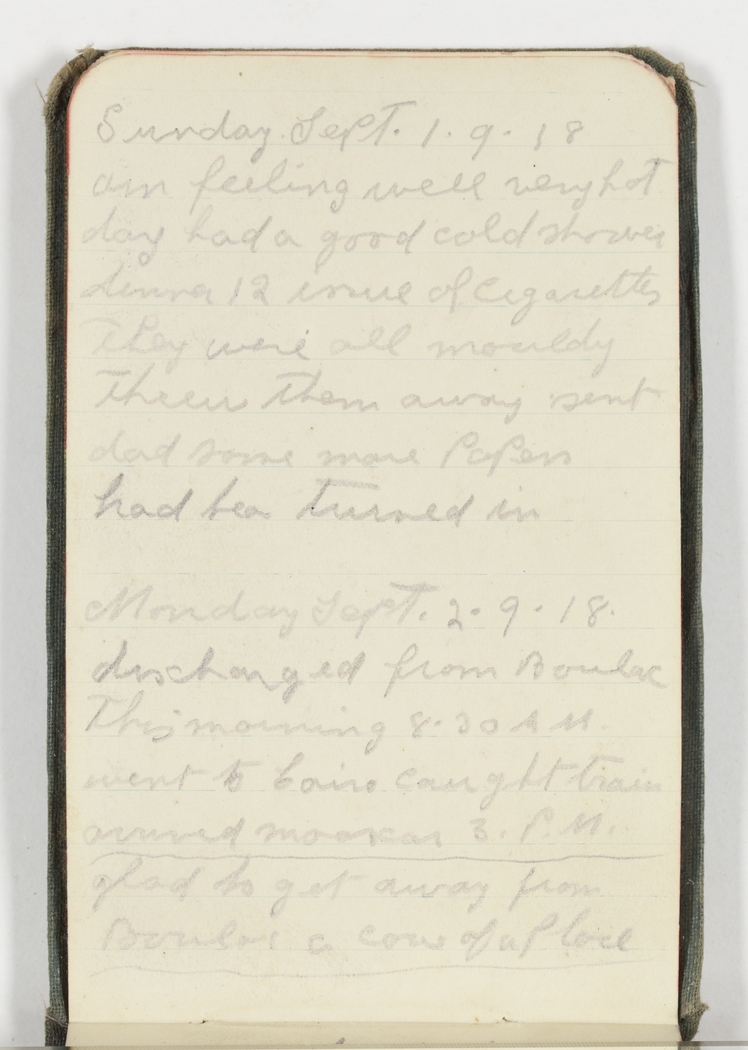 Sunday Sept. 1. 9. 18
am feeling well very hot
day had a good cold shower
dinner 12 issue of Cigarettes
They were all mouldy
Threw them away sent
dad some more Papers
had tea turned in
Monday Sept. 2. 9. 18.
discharged from Boulac
This morning 8. 30 A M.
went to Cairo caught train
arrived moascar 3. P. M.
glad to get away from
Boulac a cow of a Place